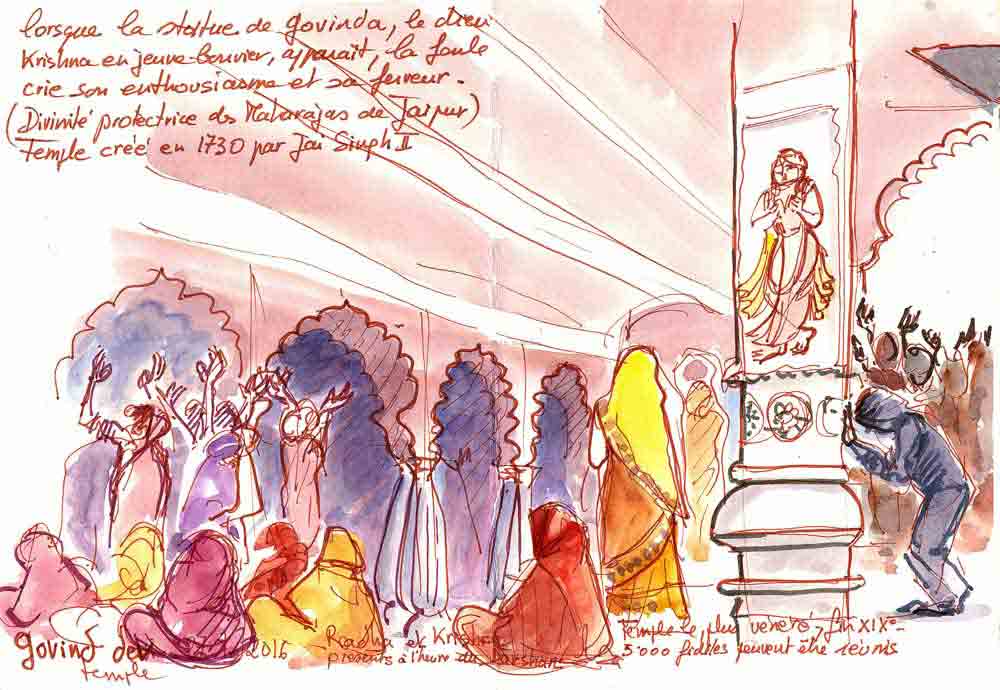 lorsque la statue de govinda, le dieu
Krishna en jeune bouvier, apparaît, la foule
crie son enthousiasme et sa ferveur.
(Divinité protectrice des Maharajas de Jaipur)
Temple créé en 1730 par Jai Singh II
govind dev 2016
temple
Radha et Krishna
présents à l'heure du darshan
temple le plus vénéré, fin XIXe
5'000 fidèles peuvent être réunis